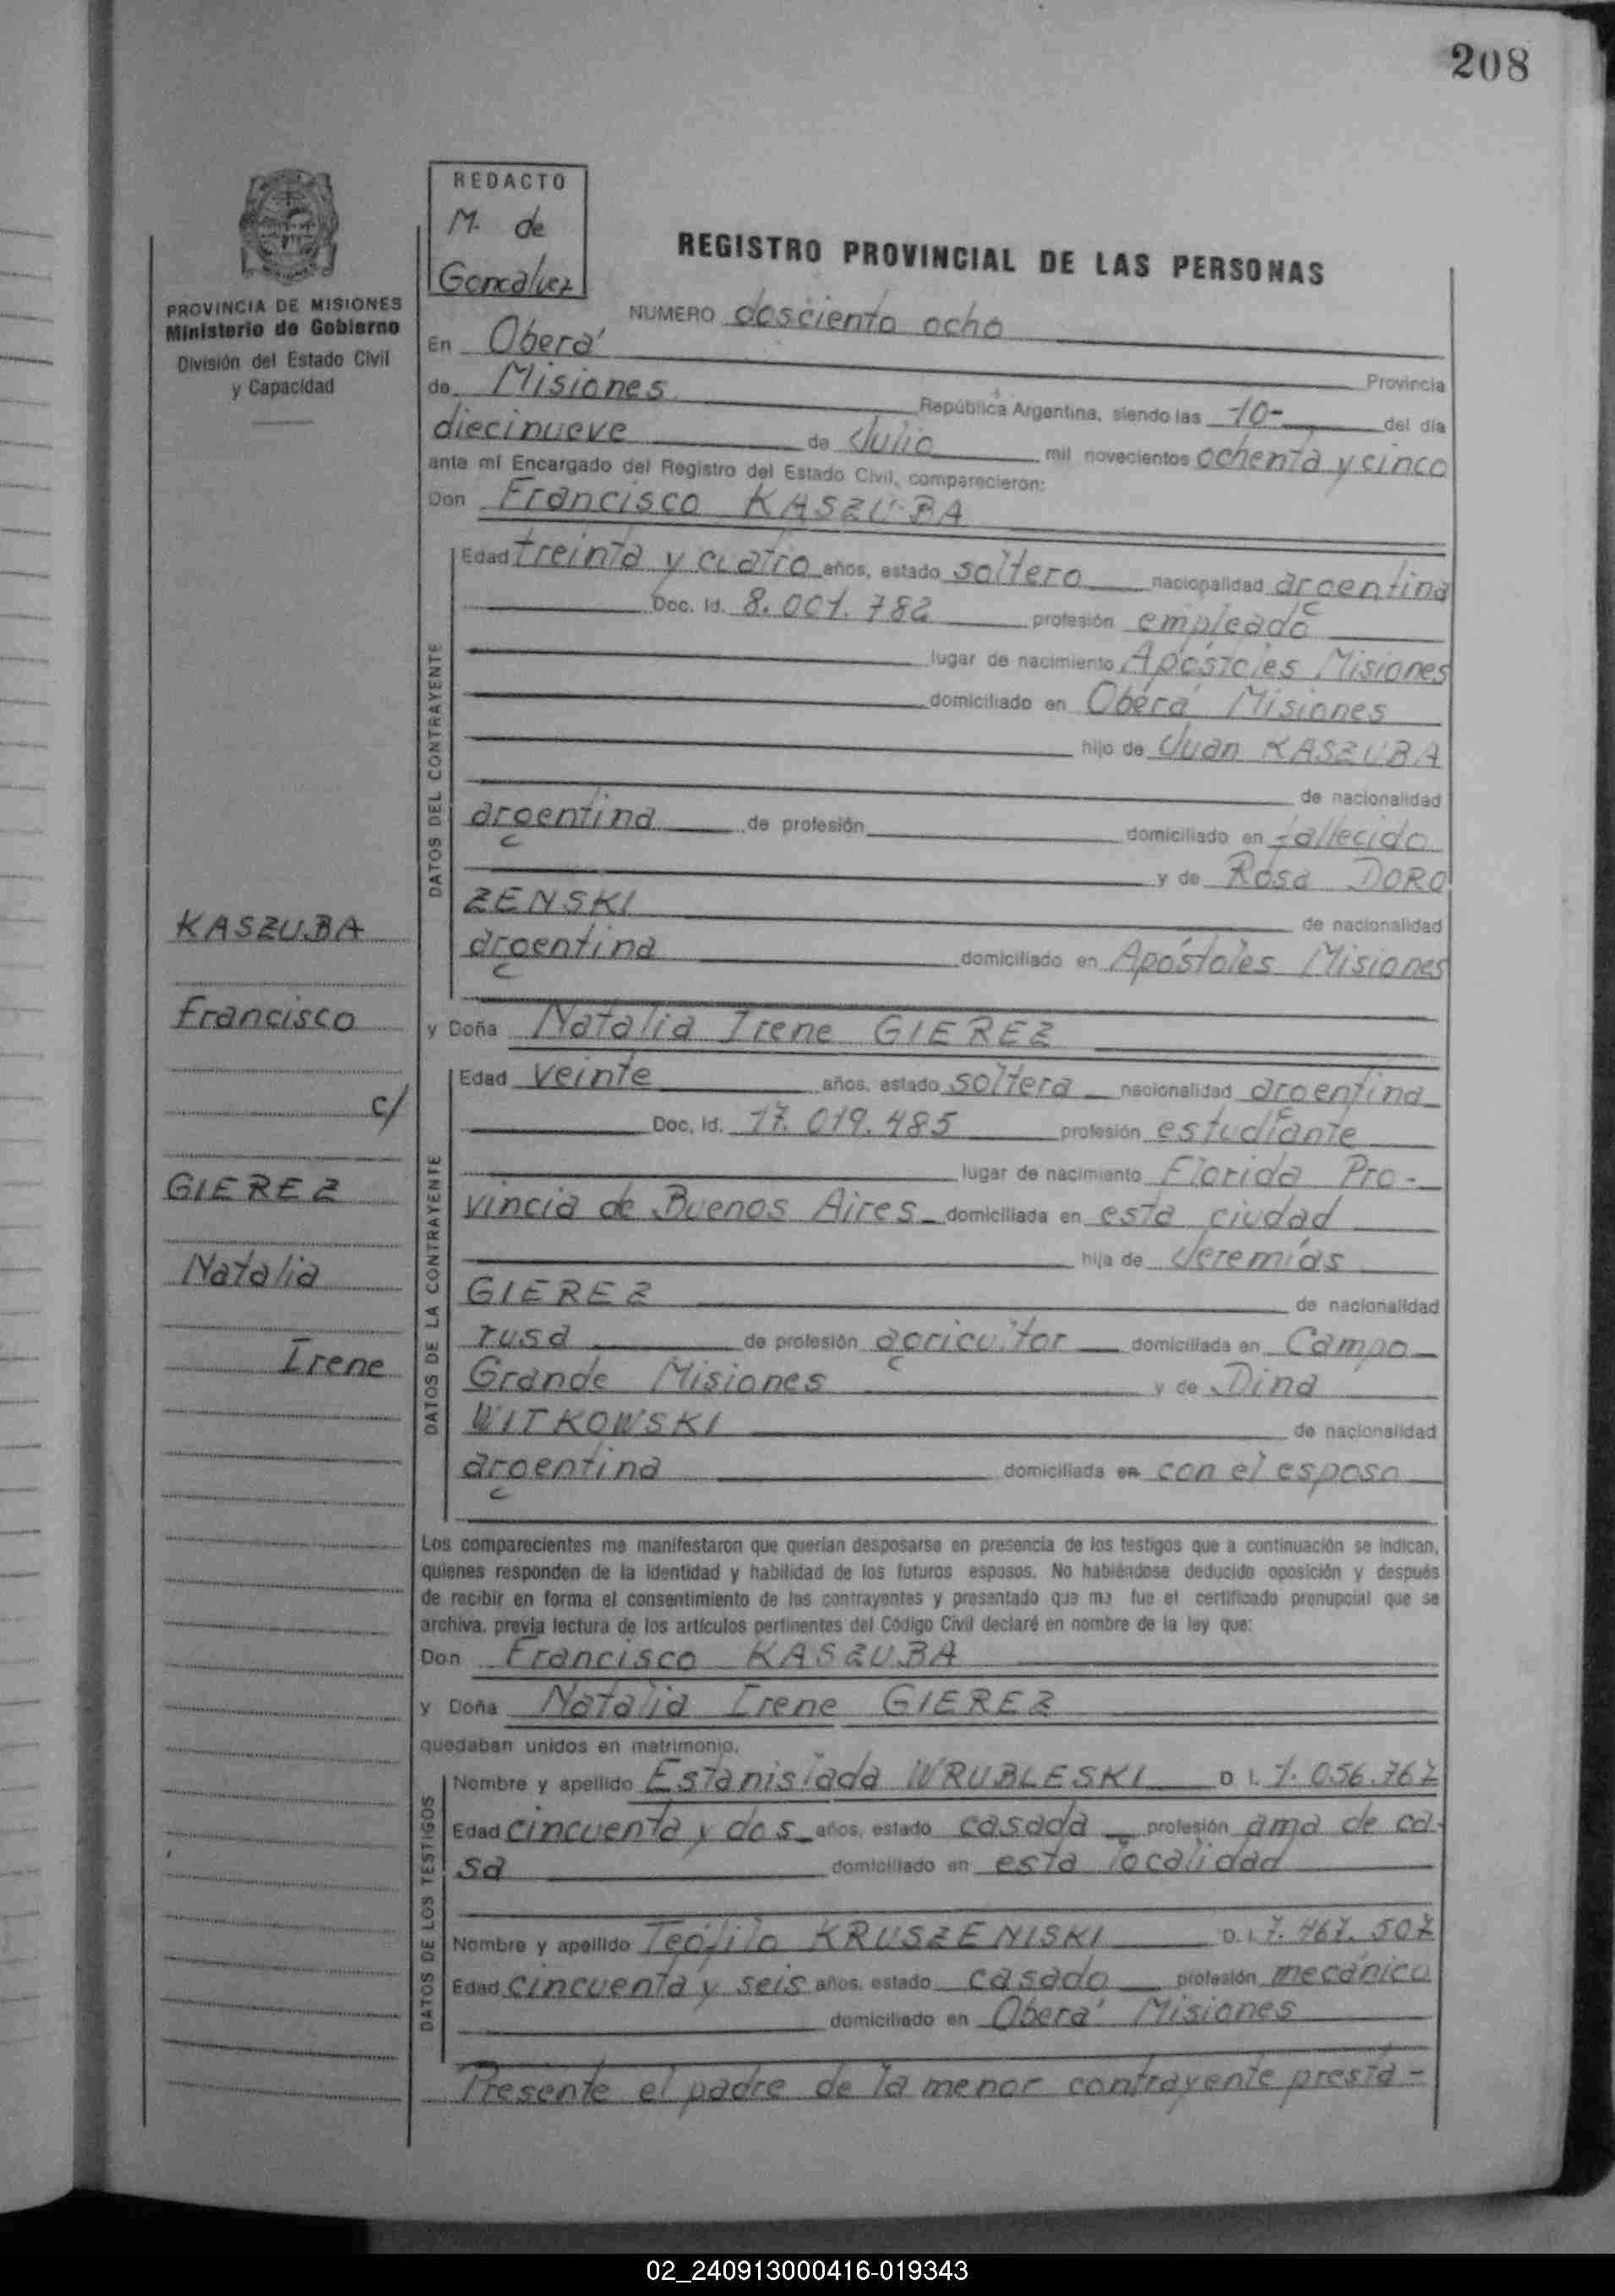 208
REDACTO
M. de
Goncalvez
REGISTRO PROVINCIAL DE LAS PERSONAS
PROVINCIA DE MISIONES
Ministerio de Gobierno
División del Estado Civil
y Capacidad
NUMERO dosciento ocho
En Oberá
Provincia
de Misiones República Argentina, siendo las 10- del día
diecinueve de Julio mil novecientos ochenta y cinco
ante mí Encargado del Registro del Estado Civil, comparecieron:
Don Francisco KASZUBA
DATOS DEL CONTRAYENTE
Edad treinta y cuatro años, estado soltero nacionalidad argentina
Doc. Id. 8.001.782 profesión empleado
lugar de nacimiento Apóstoles Misiones
domiciliado en Oberá Misiones
hijo de Juan KASZUBA
de nacionalidad
argentina de profesión domiciliado en fallecido
y de Rosa DORO
ZENSKI de nacionalidad
argentina domiciliado en Apóstoles Misiones
KASZUBA
Francisco
c/
GIEREZ
Natalia
Irene
y Doña Natalia Irene GIEREZ
DATOS DE LA CONTRAYENTE
Edad veinte años, estado soltera nacionalidad argentina
Doc. Id. 17.019.485 profesión estudiante
lugar de nacimiento Florida Pro-
vincia de Buenos Aires domiciliada en esta ciudad
hija de Jeremías
GIEREZ de nacionalidad
rusa de profesión agricultor domiciliada en Campo
Grande Misiones y de Dina
WITKOWSKI de nacionalidad
argentina domiciliada en con el esposo
Los comparecientes me manifestaron que querían desposarse en presencia de los testigos que a continuación se indican,
quienes responden de la identidad y habilidad de los futuros esposos. No habiéndose deducido oposición y después
de recibir en forma el consentimiento de los contrayentes y presentado que me fue el certificado prenupcial que se
archiva, previa lectura de los artículos pertinentes del Código Civil declaré en nombre de la ley que:
Don Francisco KASZUBA
y Doña Natalia Irene GIEREZ
quedaban unidos en matrimonio.
DATOS DE LOS TESTIGOS
Nombre y apellido Estanislada WRUBLESKI D I. 1.056.767
Edad cincuenta y dos años, estado casada profesión ama de ca-
sa domiciliado en esta localidad
Nombre y apellido Teófilo KRUSZENISKI D. I. 7.467.507
Edad cincuenta y seis años, estado casado profesión mecánico
domiciliado en Oberá Misiones
Presente el padre de la menor contrayente presta-
02_240913000416-019343